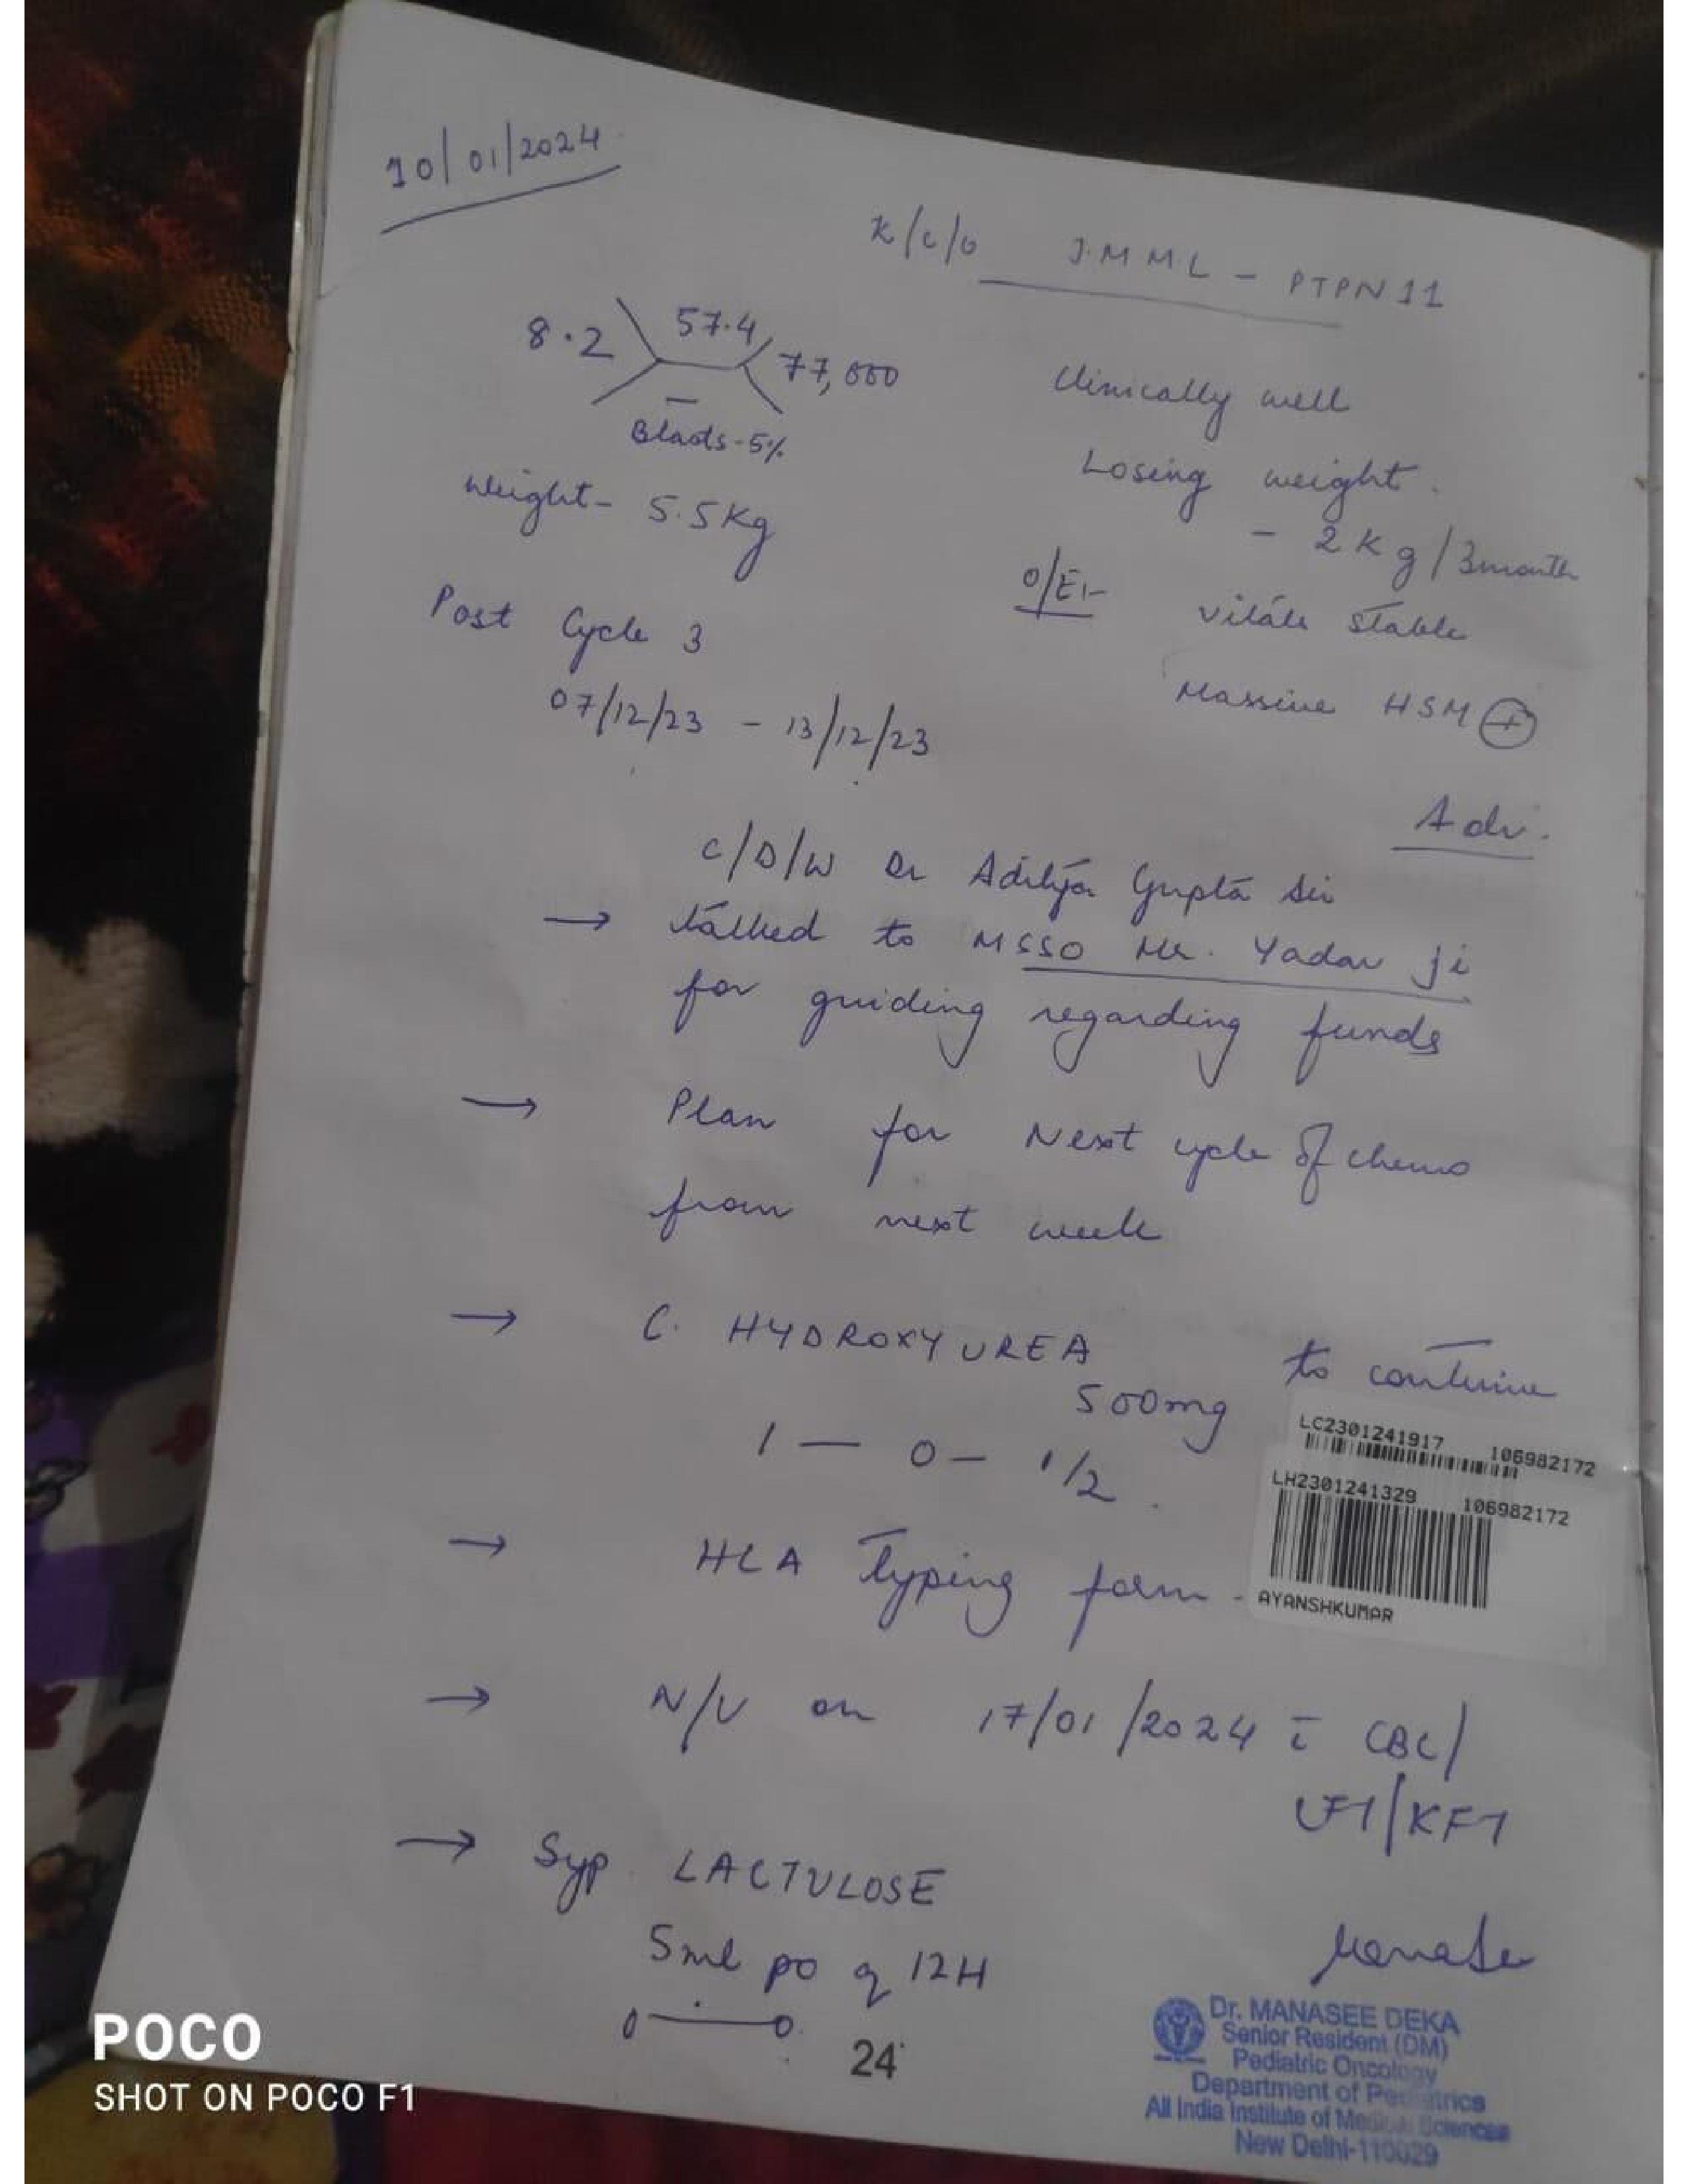 10/01/2024
K/C/O J.M.M.L - PTPN 11
8.2 57.4 77,000
Blasts - 5%
Clinically well
Losing weight.
- 2 Kg / 3 month
Weight - 5.5 Kg
O/E:- Vitals stable
Post Cycle 3
07/12/23 - 13/12/23
Massive HSM +
Adv.
C/D/W Dr Aditya Gupta Sir
→ talked to MSSO Mr. Yadav ji
for guiding regarding funds
→ Plan for Next cycle of chemo
from next week
→ C. HYDROXYUREA to continue
500mg
1 — 0 — 1/2.
LC2301241917 106982172
LH2301241329 106982172
AYANSHKUMAR
→ HLA Typing form.
→ N/V on 17/01/2024 c̄ CBC/
LFT/KFT
→ Syp. LACTULOSE
5ml po q 12H
0 — 0
24
Dr. MANASEE DEKA
Senior Resident (DM)
Pediatric Oncology
Department of Pediatrics
All India Institute of Medical Sciences
New Delhi-110029
POCO
SHOT ON POCO F1